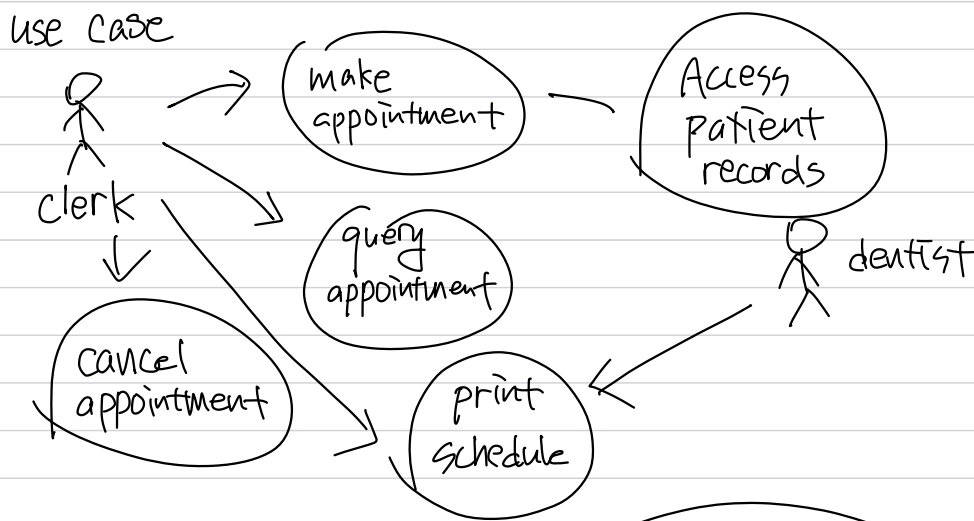 use case
make
appointment
Access
patient
records
clerk
query
appointment
dentist
cancel
appointment
print
schedule